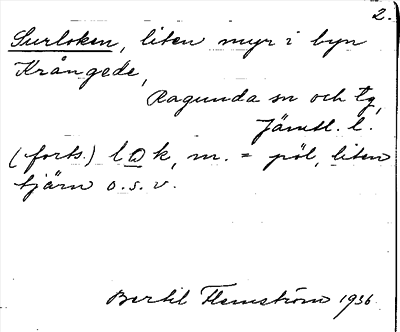 2.
Surloken, liten myr i byn
Krångede,
Ragunda sn och tg,
Jämtl. l.
(forts.) lok, m. = pöl, liten
tjärn o.s.v.
Bertil Flemström 1936.